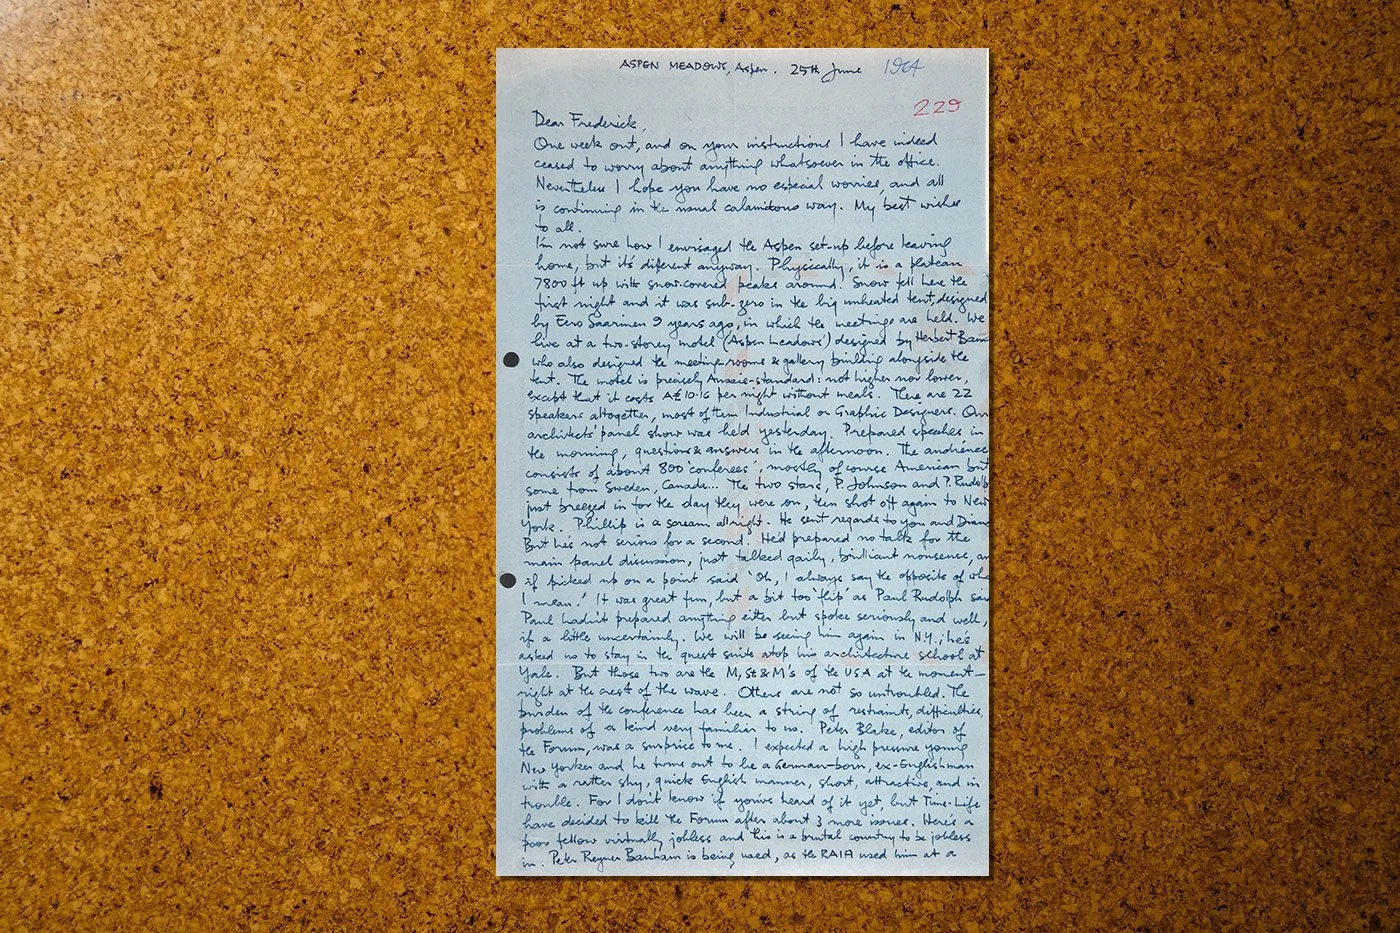 ASPEN MEADOWS, Aspen. 25th June 1964
229
Dear Frederick,
One week out, and on your instructions I have indeed
ceased to worry about anything whatsoever in the office.
Nevertheless I hope you have no especial worries, and all
is continuing in the usual calamitous way. My best wishes
to all.
I'm not sure how I envisaged the Aspen set-up before leaving
home, but it's different anyway. Physically, it is a plateau
7800 ft up with snow-covered peaks around. Snow fell here the
first night and it was sub-zero in the big unheated tent, designed
by Eero Saarinen 9 years ago, in which the meetings are held. We
live at a two-storey motel (Aspen Meadows') designed by Herbert
who also designed the meeting rooms & gallery building alongside the
tent. The motel is precisely Aussie-standard: not higher nor lower,
except that it costs A£10.16 per night without meals. There are 22
speakers altogether, most of them Industrial or Graphic Designers. Our
architects' panel show was held yesterday. Prepared speeches in
the morning, questions & answers in the afternoon. The audience
consists of about 800 'conferees', mostly of course American but
some from Sweden, Canada... The two stars, P. Johnson and P. Rudol
just breezed in for the day they were on, then shot off again to New
York. Phillip is a scream allright. He sent regards to you and
But he's not serious for a second. He'd prepared no talk for the
main panel discussion, just talked gaily, brilliant nonsense, an
if picked up on a point said 'Oh, I always say the opposite of wha
I mean.' It was great fun, but a bit too 'flip' as Paul Rudolph said
Paul hadn't prepared anything either but spoke seriously and well,
if a little uncertainly. We will be seeing him again in N.Y.; he's
asked us to stay in the guest suite atop his architecture school at
Yale. But those two are the M, St. & M's of the USA at the moment —
right at the crest of the wave. Others are not so untroubled. The
burden of the conference has been a string of restraints, difficulties,
problems of a kind very familiar to us. Peter Blake, editor of
the Forum, was a surprise to me. I expected a high pressure young
New Yorker and he turns out to be a German-born, ex-Englishman
with a rather shy, quick English manner, short, attractive, and in
trouble. For I don't know if you've heard of it yet, but Time-Life
have decided to kill the Forum after about 3 more issues. Here's a
poor fellow virtually jobless and this is a brutal country to be jobless
in. Peter Reyner Banham is being used, as the RAIA used him at a